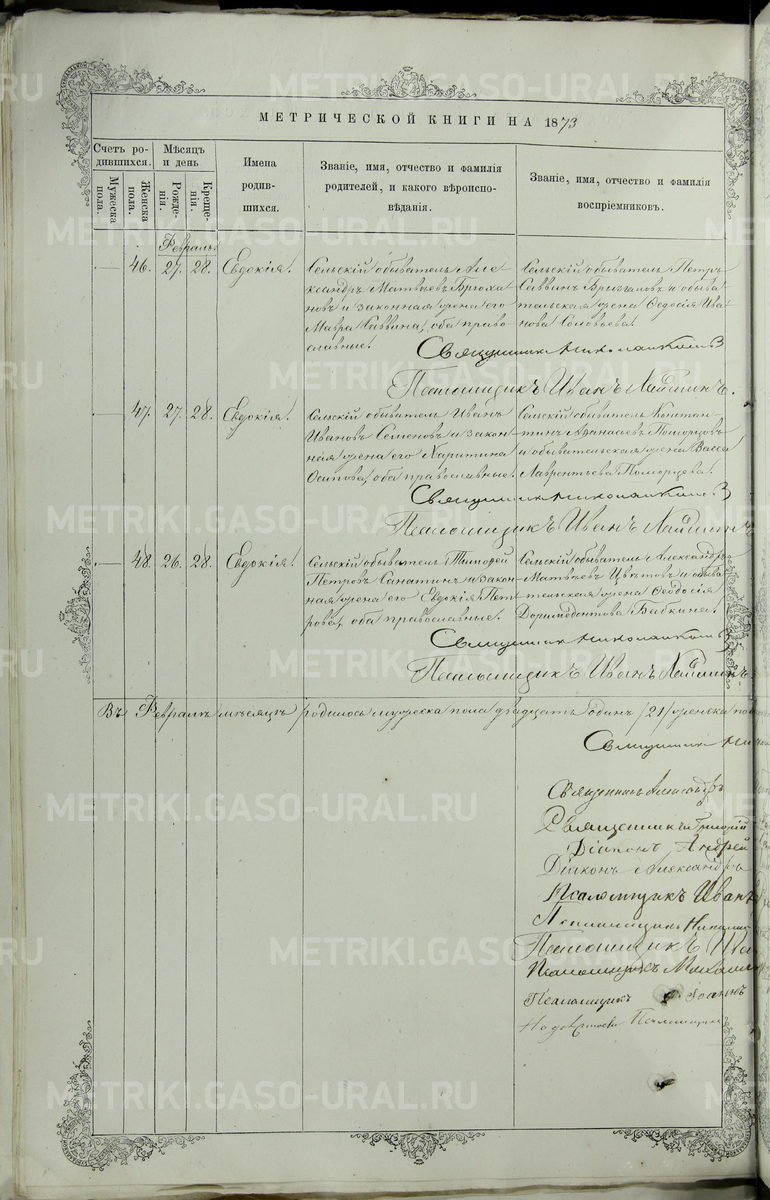 МЕТРИЧЕСКОЙ КНИГИ НА 1873
Счетъ ро-
дившихся.
Мужеска
пола.
Женска
пола.
Мѣсяцъ
и день
Рожде-
нія.
Креще-
нія.
Имена
родив-
шихся.
Званіе, имя, отчество и фамилія
родителей, и какого вѣроиспо-
вѣданія.
Званіе, имя, отчество и фамилія
воспріемниковъ.
Февраль.
46. 27. 28. Евдокія.
Сельскій обыватель Але-
ксандръ Матвѣевъ
новъ и законная жена его
Мавра Саввина, оба право-
славные.
Сельскій обыватель Петръ
Саввинъ и обыва-
тельская жена Ѳедосія Ива-
нова Соловьева.
Священник Николай
Псаломщикъ Иванъ
47. 27. 28. Евдокія.
Сельскій обыватель Иванъ
Ивановъ Семеновъ и закон-
ная жена его Харитина
Осипова, оба православные.
Сельскій обыватель Констан-
тинъ Аѳанасьевъ Поморцовъ
и обывательская жена Васса
Лаврентьева Поморцева.
Священник Николай
Псаломщикъ Иванъ
48. 26. 28. Евдокія.
Сельскій обыватель Тимофей
Петровъ Санатинъ и закон-
ная жена его Евдокія Пет-
рова, оба православные.
Сельскій обыватель Александръ
Матвѣевъ Цвѣтовъ и обыва-
тельская жена Ѳеодосія
Доримедонтова Бабкина.
Священник Николай
Псаломщикъ Иванъ
Въ Февралѣ мѣсяцѣ родилось мужеска пола двадцать одинъ /21/ женска по
Священник
Священникъ Александръ
Священникъ Григорій
Діаконъ Андрей
Діаконъ Александръ
Псаломщикъ Иванъ
Псаломщикъ Николай
Псаломщикъ
Псаломщикъ Михаил
Псаломщикъ Іоаннъ
Псаломщик
METRIKI.GASO-URAL.RU